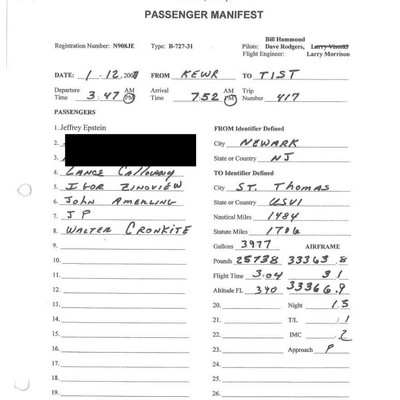 PASSENGER MANIFEST
Bill Hammond
Registration Number: N908JE Type: B-727-31 Pilots: Dave Rodgers, Larry Visoski
Flight Engineer: Larry Morrison
DATE: 1-12,2007 FROM KEWR TO TIST
Departure Time 3:47 AM PM Arrival Time 7:52 AM PM Trip Number 417
PASSENGERS
1. Jeffrey Epstein FROM Identifier Defined
2. City NEWARK
3. State or Country NJ
4. LANCE CALLOWAY TO Identifier Defined
5. IGOR ZINOVIEW City ST. THOMAS
6. JOHN AMERLING State or Country USVI
7. JP Nautical Miles 1484
8. WALTER CRONKITE Statute Miles 1706
9. Gallons 3977 AIRFRAME
10. Pounds 25738 33363.8
11. Flight Time 3:04 31
12. Altitude FL 340 33366.9
13. 20. Night 1.5
14. 21. T/L / 1
15. 22. IMC .2
16. 23. Approach P
17. 24.
18. 25.
19. 26.